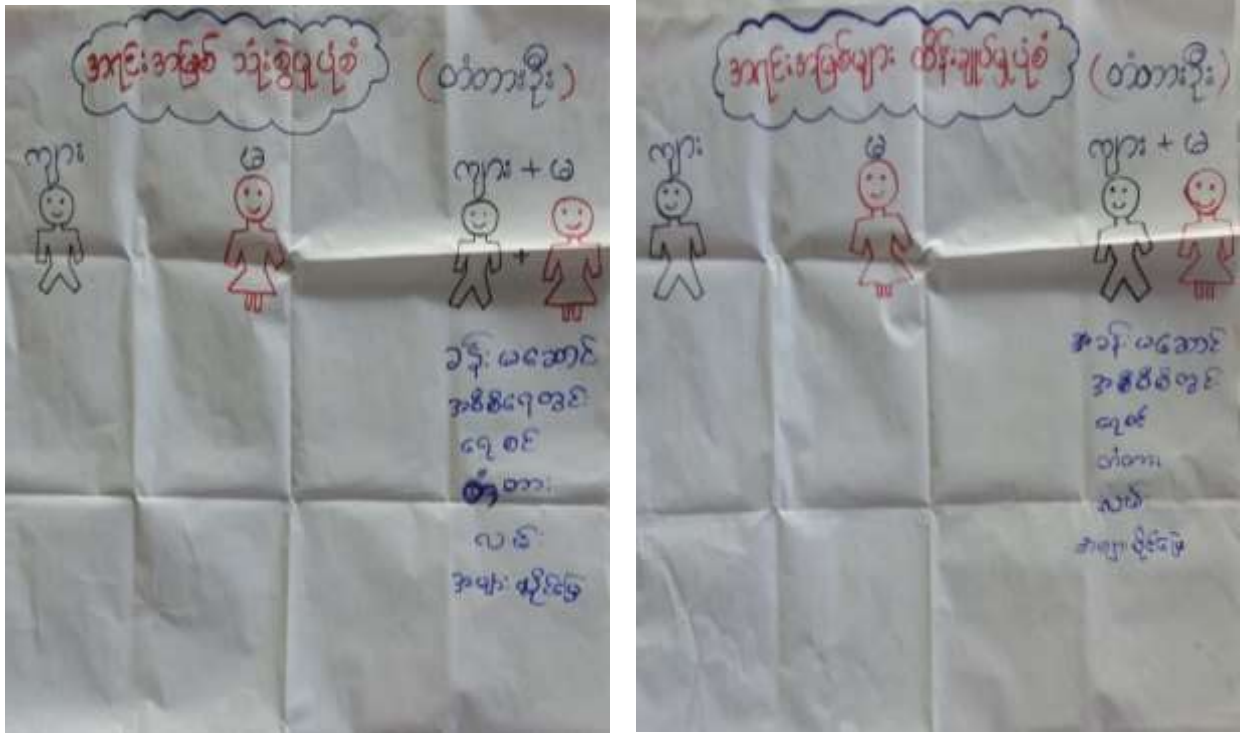 အရင်းအမြစ် သုံးစွဲမှုပုံစံ (တံတားဦး)
ကျား မ ကျား + မ
+
ခန်းမဆောင်
အစိစိရေတွင်း
ရေစင်
တံတား
လမ်း
အများပိုင်မြေ
အရင်းအမြစ်များ ထိန်းချုပ်မှုပုံစံ (တံတားဦး)
ကျား မ ကျား + မ
အခန်းမဆောင်
ရေစင်
တံတား
လမ်း
အများပိုင်မြေ